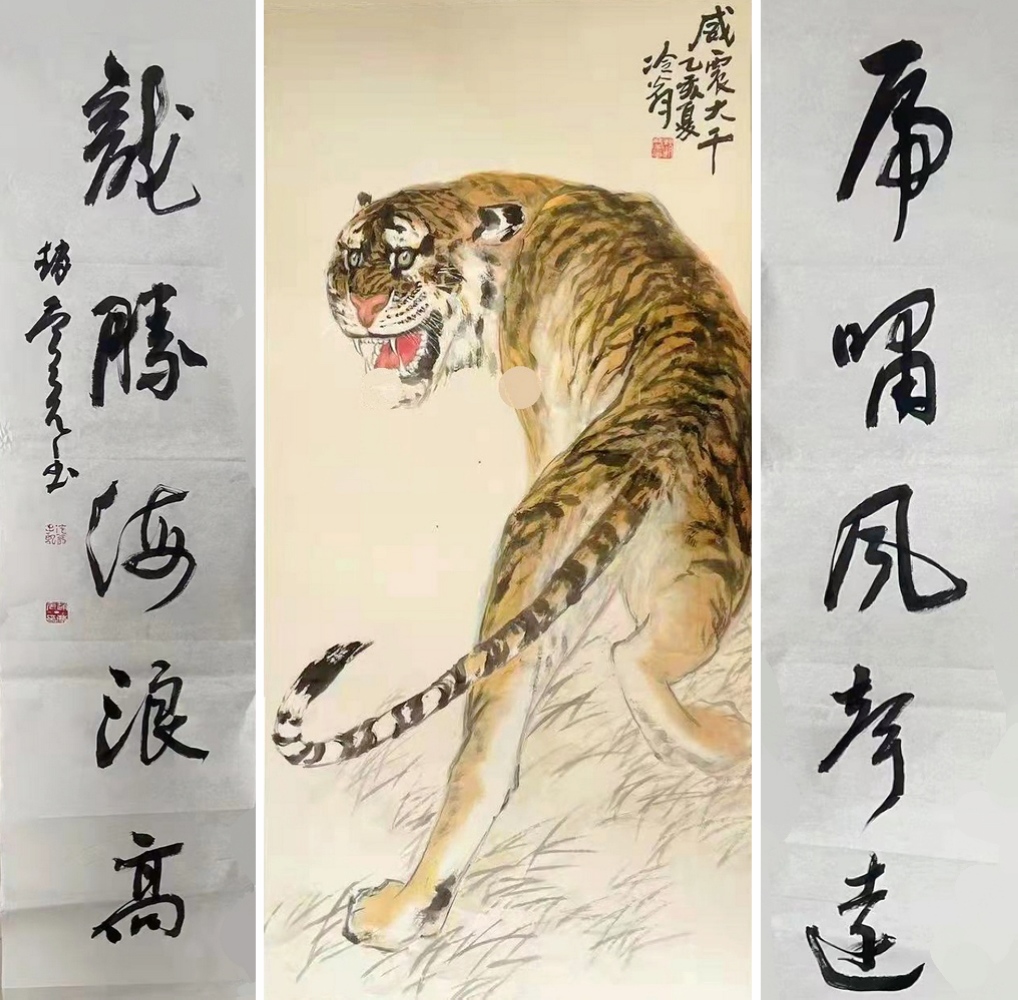 虎嘯風聲遠
威震大千
乙亥夏
龍騰海浪高